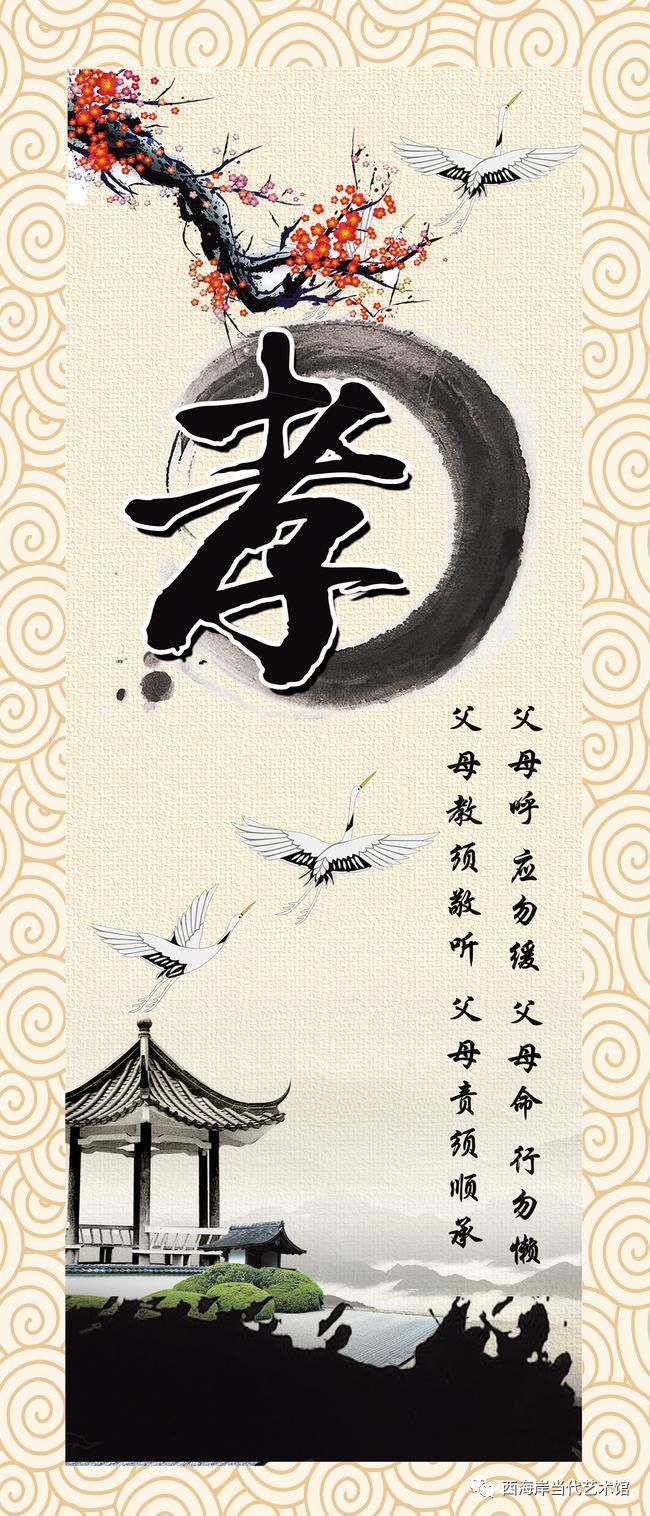 孝
父母呼 应勿缓 父母命 行勿懒
父母教须敬听 父母责须顺承
西海岸当代艺术馆